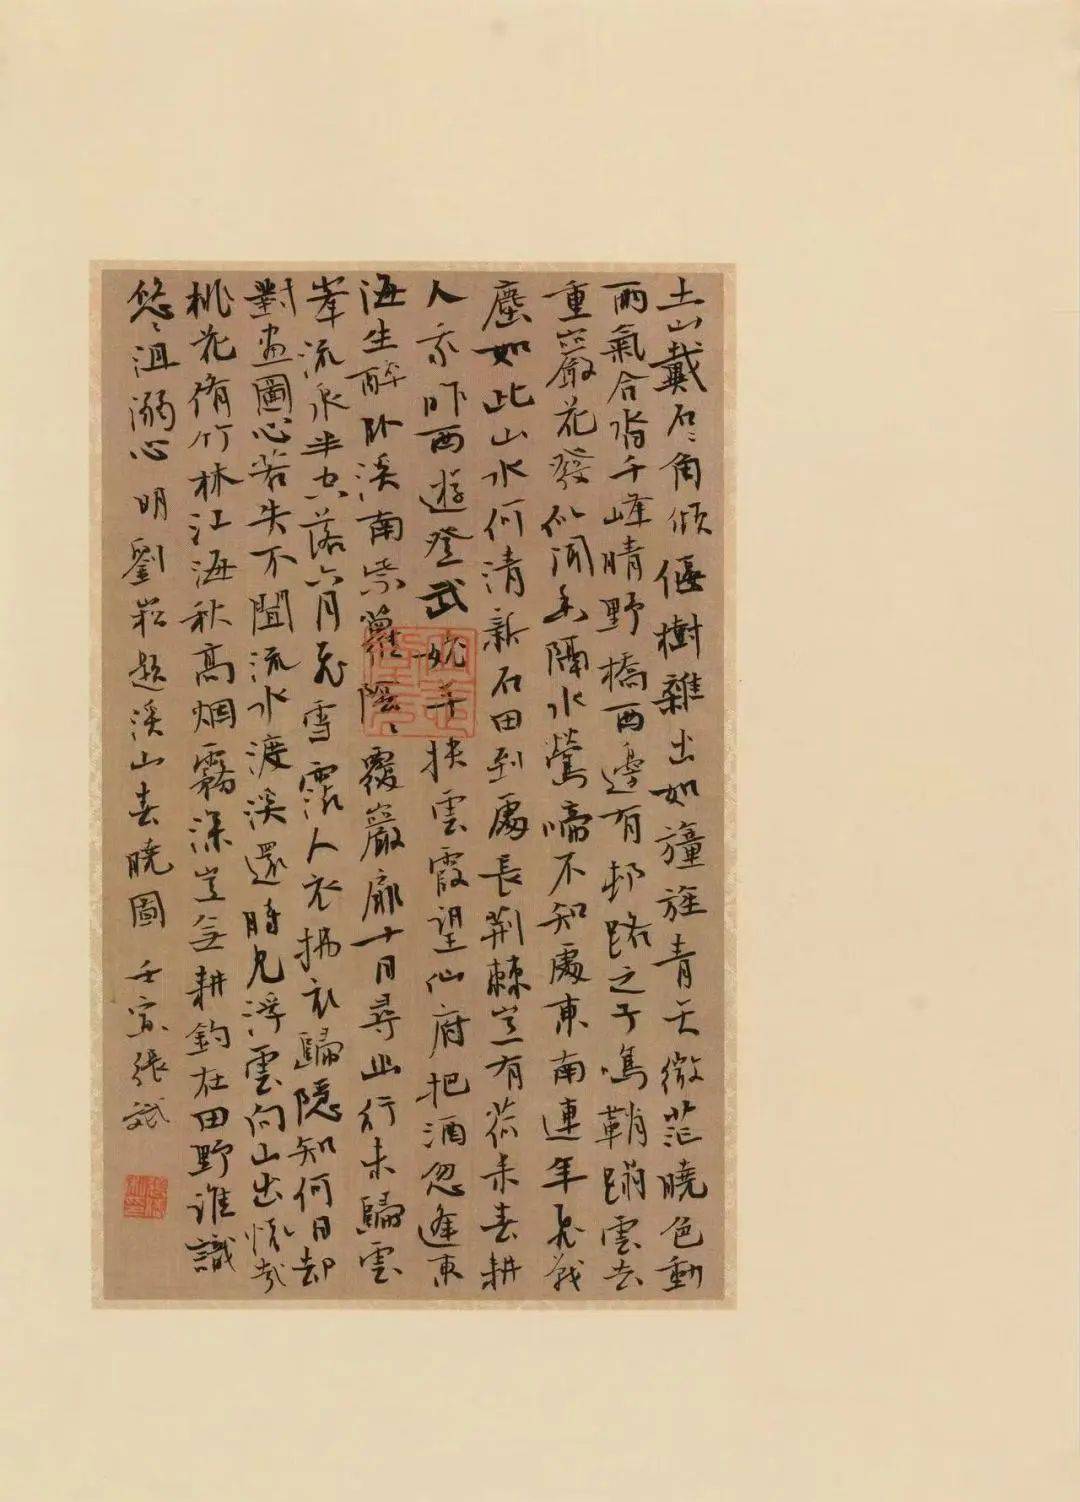 土山戴石石角傾偃樹雜出如旛旌青天微茫曉色動
雨氣合沓千峰晴野橋西邊有邨路之子鳴鞘蹋雲去
重巖花發似聞香隔水鶯啼不知處東南連年飛戰
塵如此山水何清新石田到處長荆棘豈有荷耒春耕
人我昨西遊登武姥手挾雲霞望仙府把酒忽逢東
海生醉卧溪南紫蘿陰陰陰覆巖扉十日尋山行未歸雲
峯流泉半空落六月飛雪霑人衣拂衣歸隱知何日却
對畫圖心若失不聞流水渡溪還時見浮雲向山出
桃花脩竹林江海秋高烟霧深豈無耕釣在田野誰識
悠悠沮溺心 明劉崧題溪山春曉圖 壬寅張